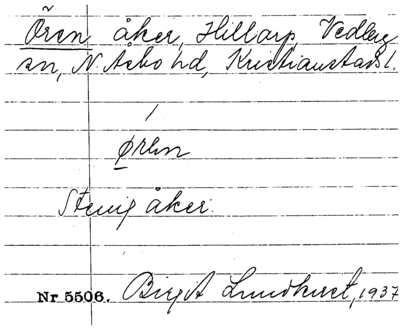 Ören åker, Hillarp, Vedby
sn, N. Åsbo hd, Kristianstads l.
øren
Stenig åker.
Nr 5506. Birgit Lundkvist, 1937